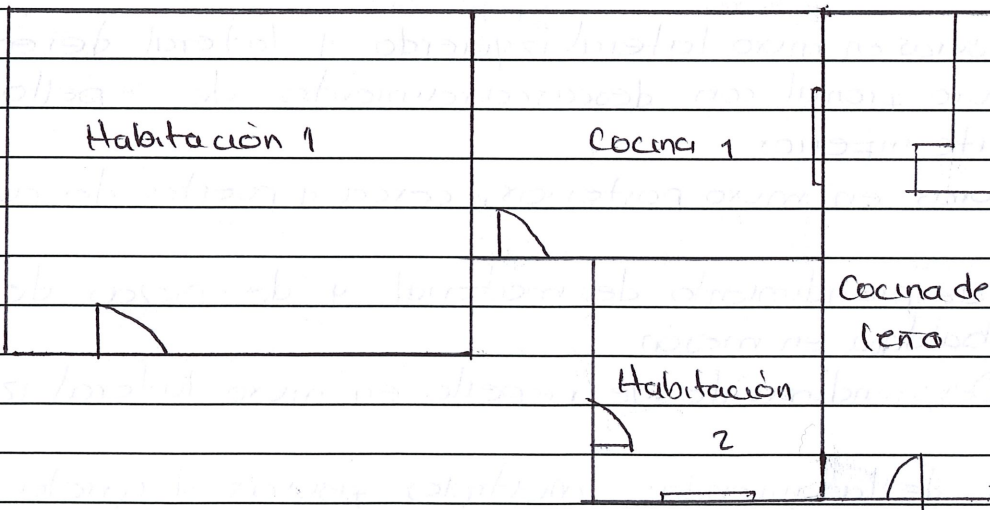 Habitación 1
Cocina 1
Cocina de
leña
Habitación
2